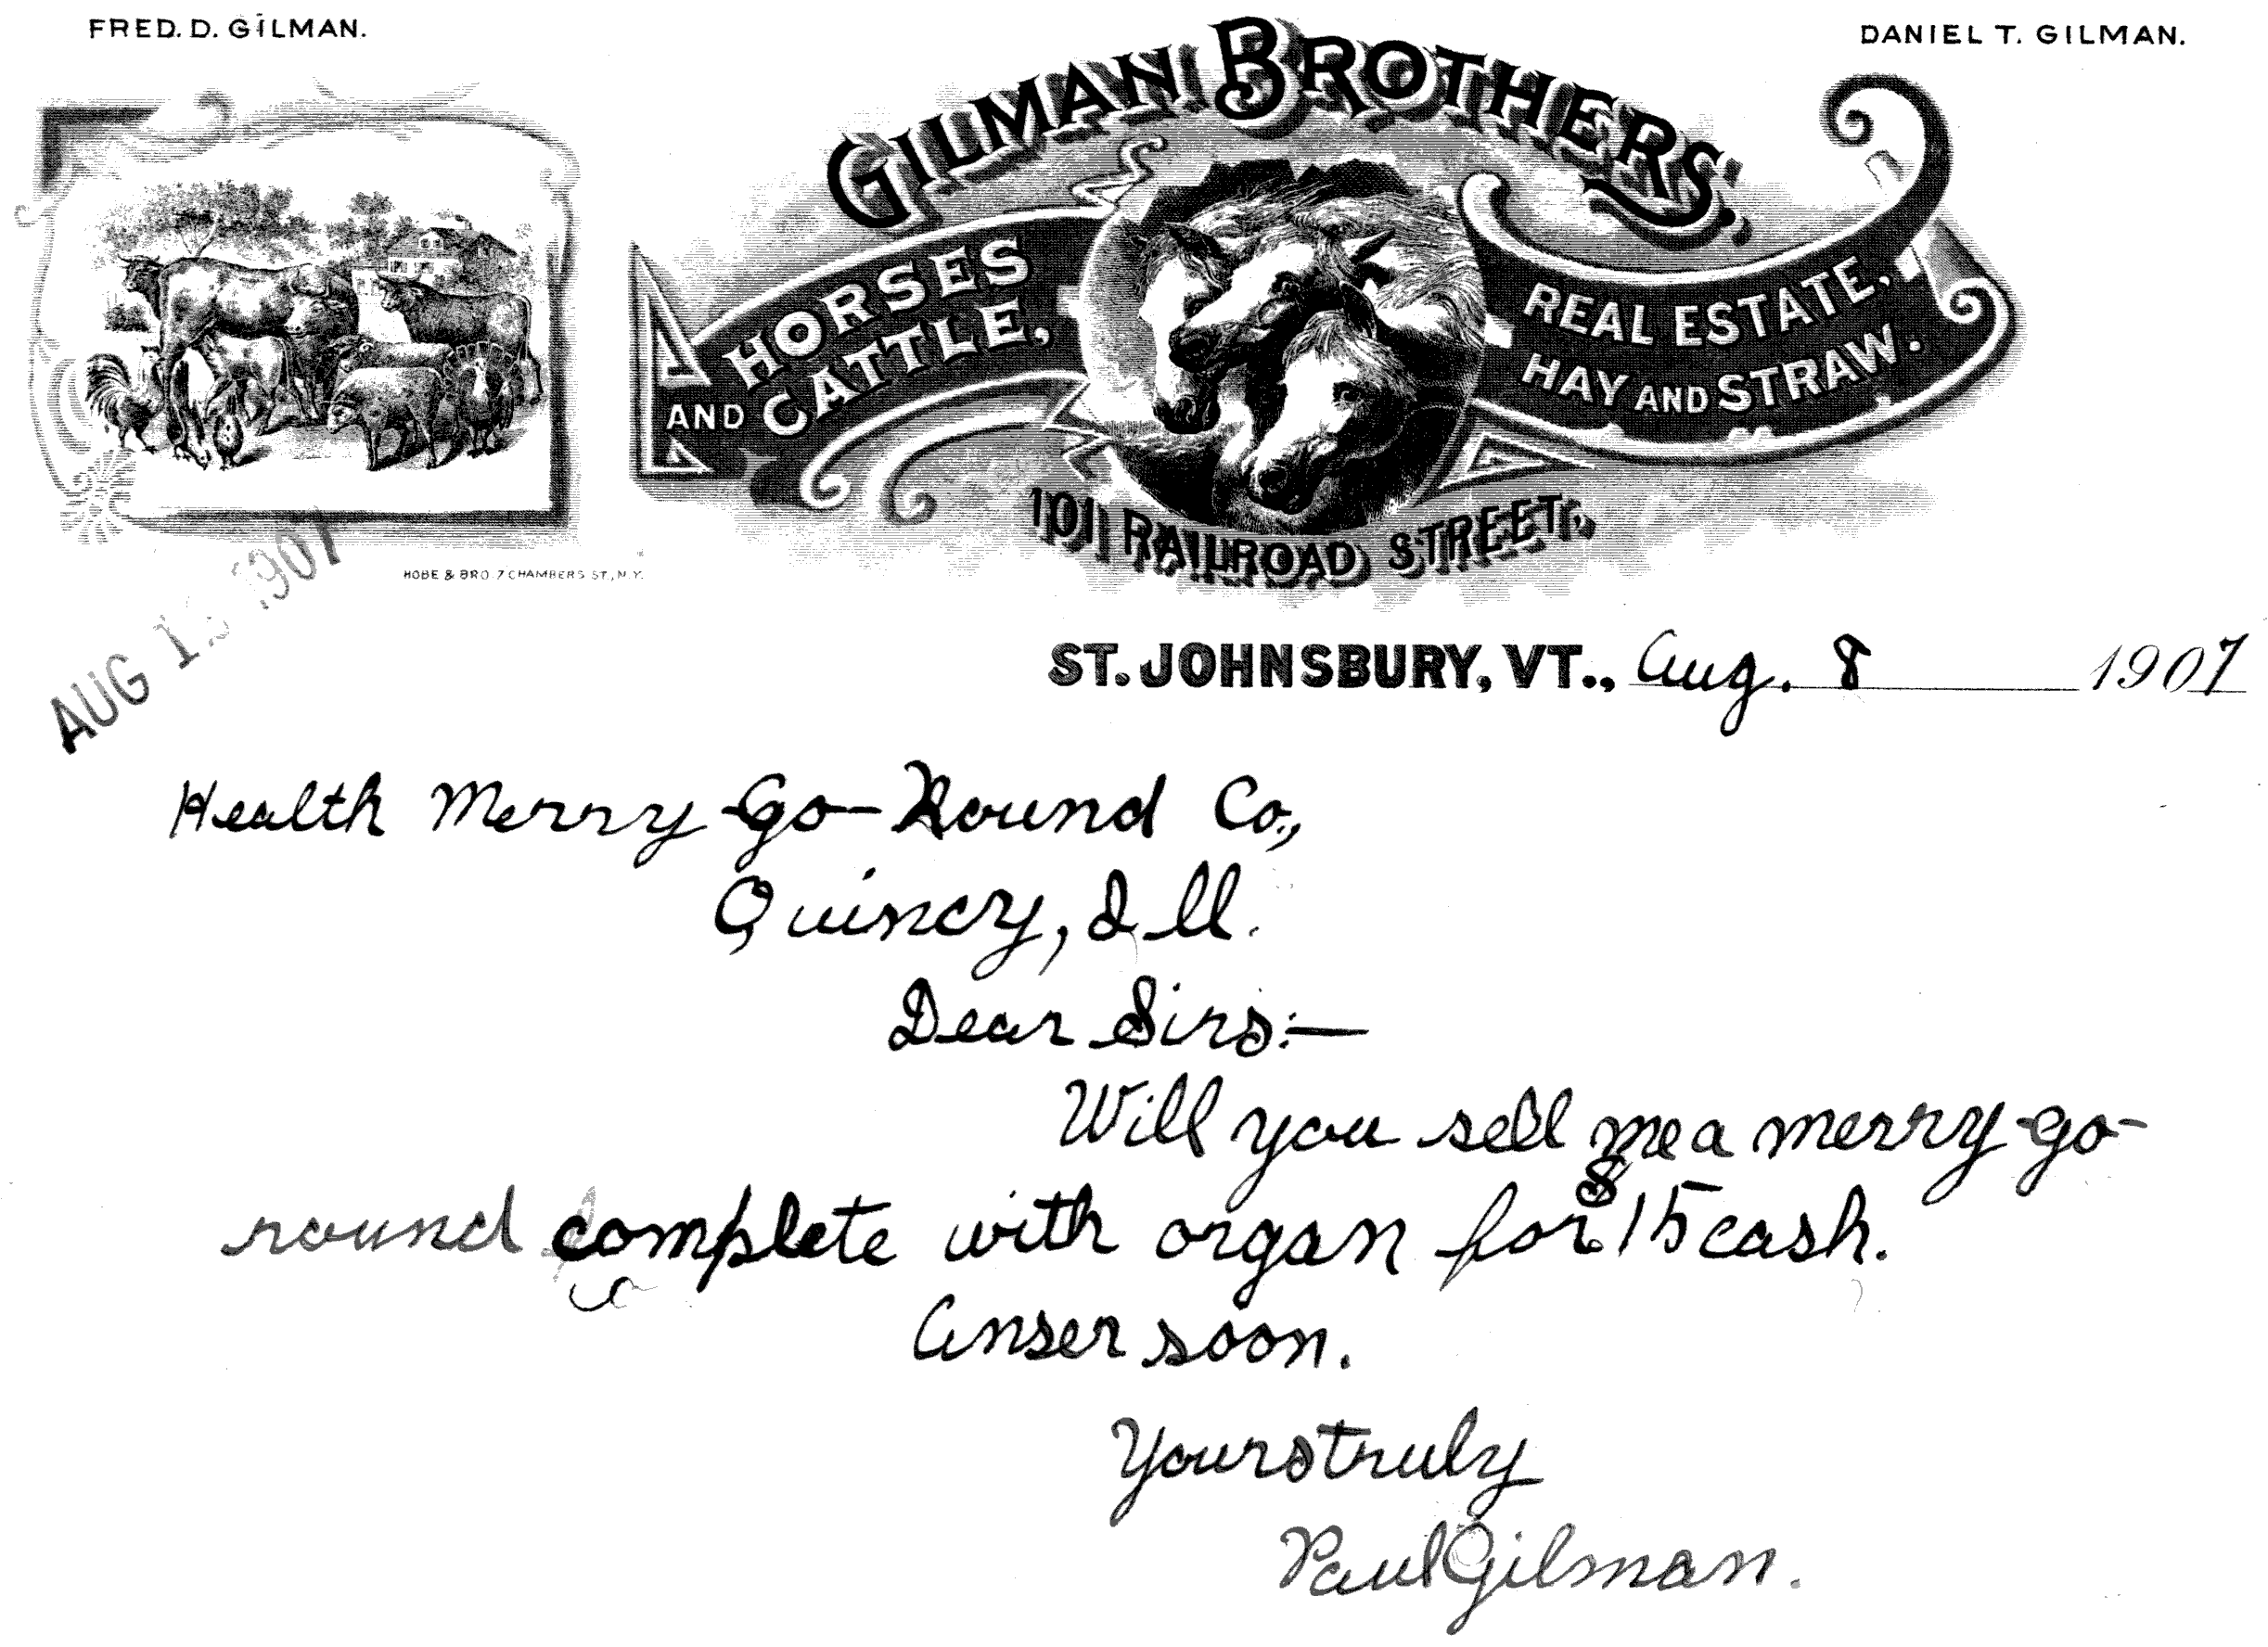 FRED. D. GILMAN.
DANIEL T. GILMAN.
GILMAN BROTHERS,
HORSES
AND CATTLE,
REAL ESTATE,
HAY AND STRAW.
101 RAILROAD STREET,
HOBE & BRO. 7 CHAMBERS ST., N.Y.
AUG 1907
ST. JOHNSBURY, VT., Aug. 8 1907
Health Merry-Go-Round Co.,
Quincy, Ill.
Dear Sirs:—
Will you sell me a merry-go-
round complete with organ for $15 cash.
Anser soon.
Yours truly
Paul Gilman.